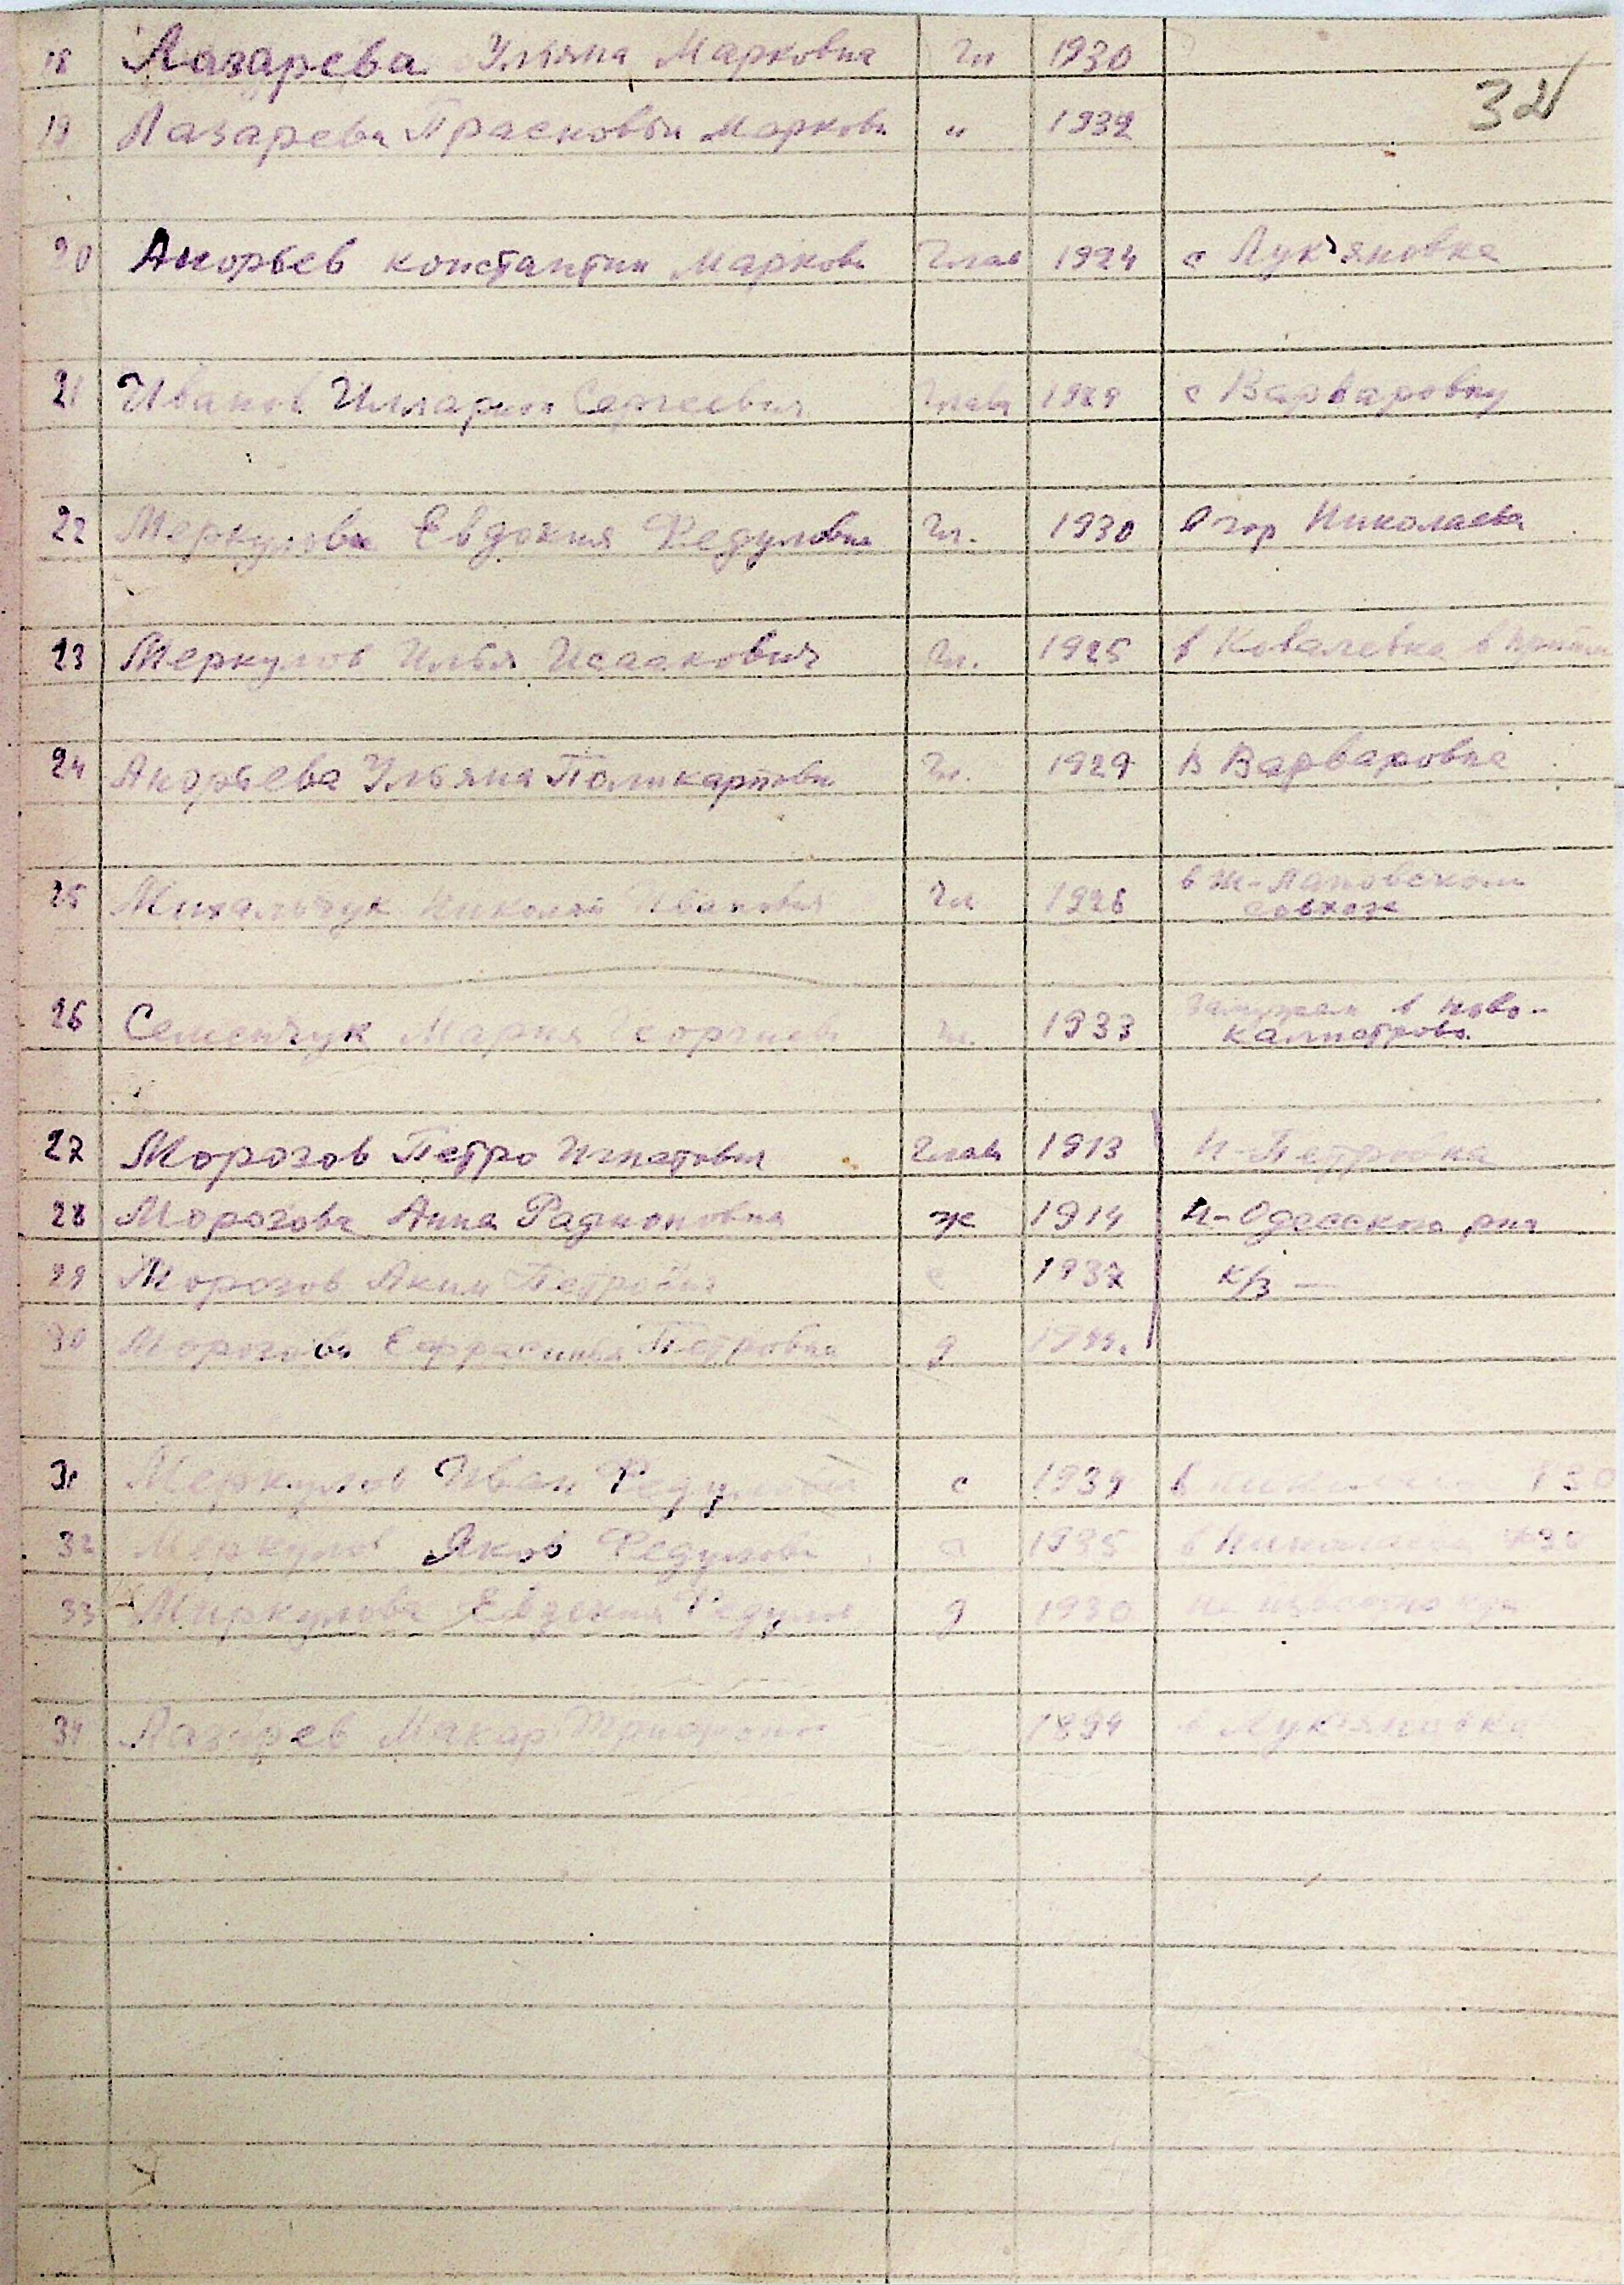 18 Лазарева Ульяна Марковна Гл 1930
32
19 Лазарева Прасковья Маркова " 1932
20 Андрьев константин Маркови Глав 1924 с Лук'яновка
21 Иванов Илларион Сергеевич Глава 1929 с Варваровку
22 Меркулова Евдокия Федуловна Гл. 1930 в гор Николаева
23 Меркулов Илья Исаакович Гл. 1925 в Ковалевка в
24 Андрьева Ульяна Поликарповн Гл. 1929 в Варваровке
25 Михальчук Николай Иванович Гл 1926 в
совхозе
26 Семенчук Мария Гл. 1933 замужем в ново-
27 Морозов Петро Игнатович Глав 1913 Н-Петровка
28 Морозова Анна Радионовна ж 1914 Н-Одесского рна
29 Морозов Аким Петрович с 1937 к/з —
30 Морозова Ефросинья Петровна д
31 Меркулов Иван Федулович с 1939 в
32 Меркулов Яков Федулови с 1935 в Николаева
33 Миркулова Евдокия д 1930 не
34 Лазарев Макар 1894 в Лукьяновка